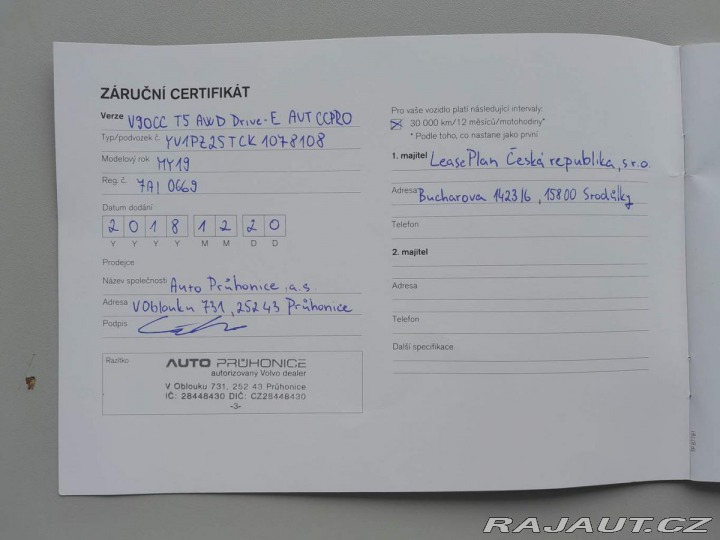 ZÁRUČNÍ CERTIFIKÁT
Verze V90CC T5 AWD Drive-E AUT CCPRO
Typ/podvozek č. YV1PZ25TCK1078108
Modelový rok MY19
Reg. č. 7AI 0669
Datum dodání
2 0 1 8 1 2 2 0
Y Y Y Y M M D D
Prodejce
Název společnosti Auto Průhonice, a.s.
Adresa V Oblouku 731, 252 43 Průhonice
Podpis
Razítko
AUTO PRŮHONICE
autorizovaný Volvo dealer
V Oblouku 731, 252 43 Průhonice
IČ: 28448430 DIČ: CZ28448430
-3-
Pro vaše vozidlo platí následující intervaly:
30 000 km/12 měsíců/motohodiny*
* Podle toho, co nastane jako první
1. majitel LeasePlan Česká republika, s.r.o.
Adresa Bucharova 1423/6, 15800 Srodůlky
Telefon
2. majitel
Adresa
Telefon
Další specifikace
RAJAUT.CZ